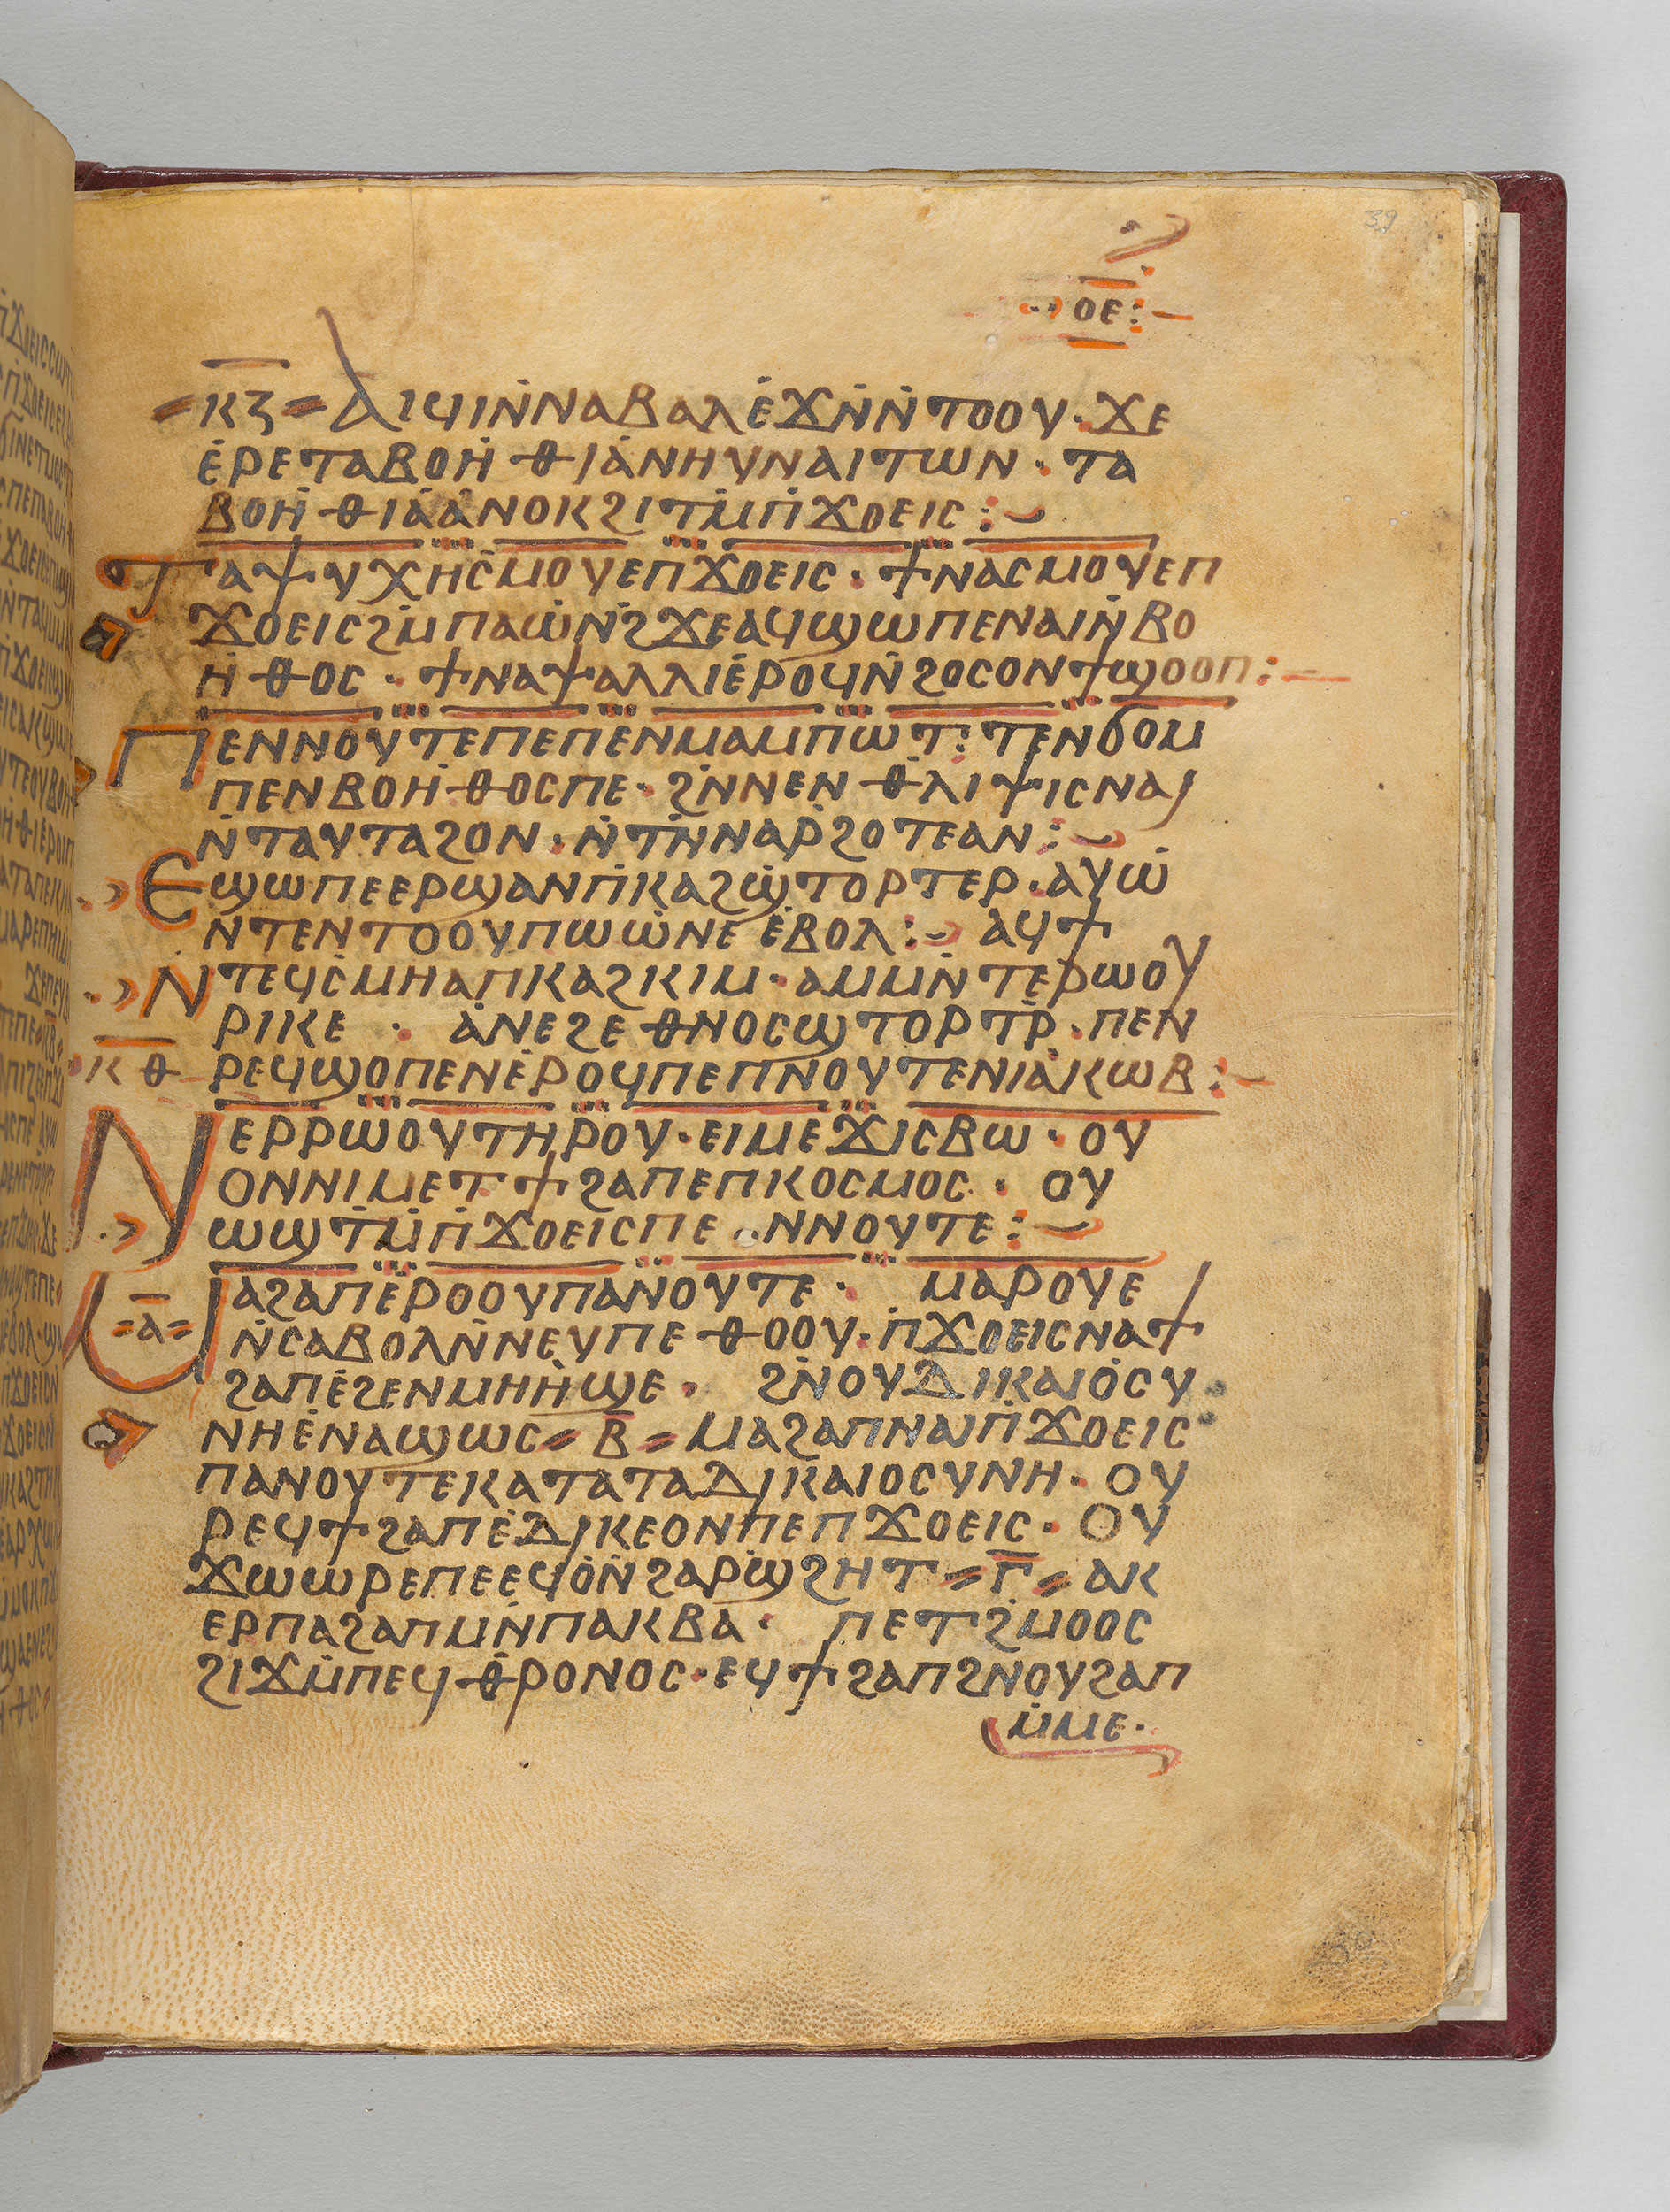 39
ⲟⲉ:
ⲕⲍ ⲁⲓϥⲓⲛ̇ⲛⲁⲃⲁⲗⲉ̇ϫⲛ̇ⲛ̇ⲧⲟⲟⲩ· ϫⲉ
ⲉ̇ⲣⲉⲧⲁⲃⲟⲏ̇ⲑⲓⲁ̇ⲛⲏⲩⲛⲁⲓⲧⲱⲛ· ⲧⲁ
ⲃⲟⲏ̇ⲑⲓⲁ̇ⲁ̇ⲛⲟⲕϩⲓⲧⲙ̇ⲡ̇ϫⲟⲉⲓⲥ:
ⲧⲁⲯⲩⲭⲏⲥ̇ⲙⲟⲩⲉⲡϫⲟⲉⲓⲥ· ϯⲛⲁⲥⲙⲟⲩⲉⲡ
ϫⲟⲉⲓⲥϩⲙ̇ⲡⲁⲱ̇ⲛϩ̇ϫⲉⲁϥϣⲱⲡⲉⲛⲁⲓⲛ̇ⲃⲟ
ⲏ̇ⲑⲟⲥ· ϯⲛⲁⲯⲁⲗⲗⲓⲉ̇ⲣⲟϥⲛ̇ϩⲟⲥⲟⲛϯϣⲟⲟⲡ:
ⲡⲉⲛⲛⲟⲩⲧⲉⲡⲉⲡⲉⲛⲙⲁⲙⲡⲱⲧ: ⲧⲉⲛϭⲟⲙ
ⲡⲉⲛⲃⲟⲏ̇ⲑⲟⲥⲡⲉ· ϩⲛ̇ⲛⲉⲛⲑⲗⲓⲯⲓⲥⲛⲁⲓ
ⲛ̇ⲧⲁⲩⲧⲁϩⲟⲛ· ⲛ̇ⲧⲛ̇ⲛⲁⲣ̇ϩⲟⲧⲉⲁⲛ:
ⲉϣⲱⲡⲉⲉⲣϣⲁⲛⲡ̇ⲕⲁϩϣ̇ⲧⲟⲣⲧⲉⲣ· ⲁⲩⲱ̇
ⲛ̇ⲧⲉⲛⲧⲟⲟⲩⲡⲱⲱ̇ⲛⲉⲉ̇ⲃⲟⲗ: ⲁϥϯ
ⲛ̇ⲧⲉϥⲥ̇ⲙⲏⲁⲡⲕⲁϩⲕⲓⲙ· ⲁⲙⲙⲛ̇ⲧⲉⲣⲱⲟⲩ
ⲣⲓⲕⲉ · ⲁ̇ⲛⲉϩⲉⲑⲛⲟⲥϣⲧⲟⲣⲧⲣ̇· ⲡⲉⲛ
ⲕⲑ ⲣⲉϥϣⲟⲡⲉⲛⲉ̇ⲣⲟϥⲡⲉⲡⲛⲟⲩⲧⲉⲛⲓⲁ̇ⲕⲱⲃ:
ⲛⲉⲣⲣⲱⲟⲩⲧⲏⲣⲟⲩ· ⲉⲓⲙⲉϫⲓⲥⲃⲱ· ⲟⲩ
ⲟⲛⲛⲓⲙⲉⲧϯϩⲁⲡⲉⲡⲕⲟⲥⲙⲟⲥ· ⲟⲩ
ⲱϣⲧⲙ̇ⲡ̇ϫⲟⲉⲓⲥⲡⲉ ⲛⲛⲟⲩⲧⲉ:
ⲙⲁϩⲁⲡⲉ̇ⲣⲟⲟⲩⲡⲁⲛⲟⲩⲧⲉ· ⲙⲁⲣⲟⲩⲉ
ⲁ ⲛ̇ⲥⲁⲃⲟⲗⲛ̇ⲛⲉⲩⲡⲉⲑⲟⲟⲩ· ⲡ̇ϫⲟⲉⲓⲥⲛⲁϯ
ϩⲁⲡⲉ̇ϩⲉⲛⲙⲏⲏ̇ϣⲉ· ϩⲛ̇ⲟⲩⲇⲓⲕⲁⲓⲟ̇ⲥⲩ
ⲛⲏⲉ̇ⲛⲁϣⲱⲥ ⲃ ⲙⲁϩⲁⲡⲛⲁⲓⲡ̇ϫⲟⲉⲓⲥ
ⲡⲁⲛⲟⲩⲧⲉⲕⲁⲧⲁⲧⲁⲇⲓⲕⲁⲓⲟⲥⲩⲛⲏ· ⲟⲩ
ⲣⲉϥϯϩⲁⲡⲉ̇ⲇⲓⲕⲉⲟⲛⲡⲉⲡϫⲟⲉⲓⲥ· ⲟⲩ
ϫⲱⲱⲣⲉⲡⲉⲉϥⲟ̇ⲛ̇ϩⲁⲣϣ̇ϩⲏⲧ ⲅ ⲁⲕ
ⲉⲣⲡⲁϩⲁⲡⲙⲛ̇ⲡⲁⲕⲃⲁ· ⲡⲉⲧϩ̇ⲙⲟⲟⲥ
ϩⲓϫⲙ̇ⲡⲉϥⲑⲣⲟⲛⲟⲥ· ⲉϥϯϩⲁⲡϩⲛ̇ⲟⲩϩⲁⲡ
ⲙ̇ⲙⲉ·